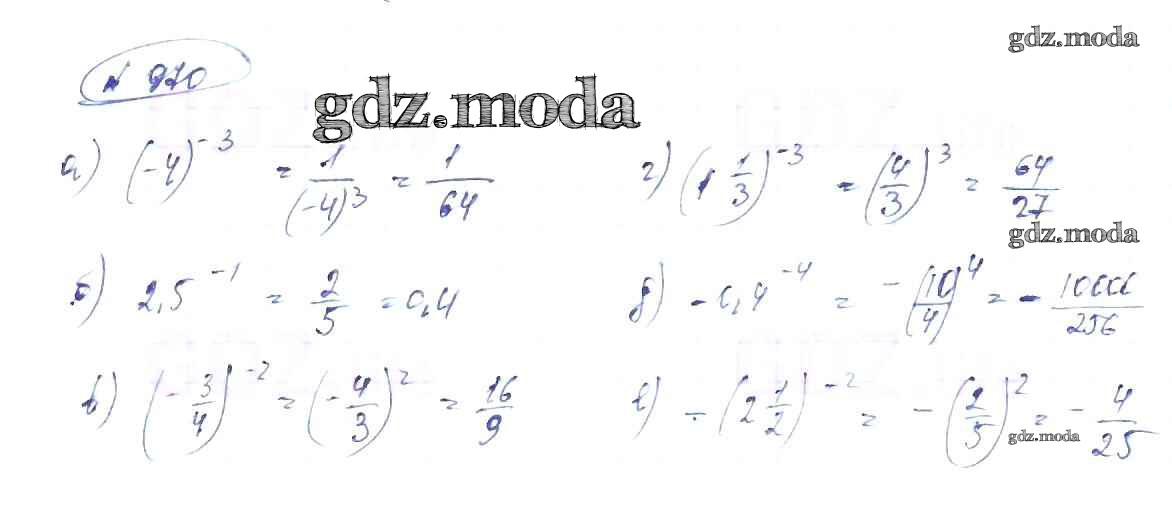 gdz.moda
№ 970
gdz.moda
а) (-4)^-3 = 1/(-4)^3 = 1/64
г) (1 1/3)^-3 = (4/3)^3 = 64/27
gdz.moda
б) 2,5^-1 = 2/5 = 0,4
д) -0,4^-4 = -(10/4)^4 = - 10000/256
в) (-3/4)^-2 = (-4/3)^2 = 16/9
е) -(2 1/2)^-2 = -(2/5)^2 = -4/25
gdz.moda